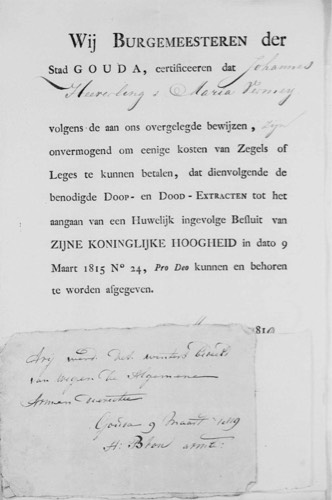 Wij BURGEMEESTEREN der
Stad GOUDA, certificeeren dat Johannes
Maria
volgens de aan ons overgelegde bewijzen, zijn
onvermogend om eenige kosten van Zegels of
Leges te kunnen betalen, dat dienvolgende de
benodigde DOOP- en DOOD-EXTRACTEN tot het
aangaan van een Huwelijk ingevolge Besluit van
ZIJNE KONINGLIJKE HOOGHEID in dato 9
Maart 1815 No 24, Pro Deo kunnen en behoren
te worden afgegeven.
Arij werd het
van wegen de Algemeene
Armen Directie
Gouda 9 Maart